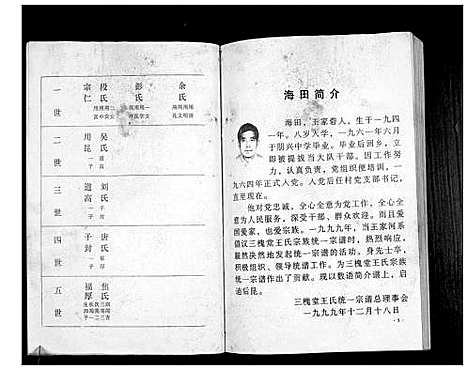 一世
宗仁
段氏
彭氏
余氏
二世
用昆
吴氏
三世
道高
刘氏
四世
子封
唐氏
五世
福厚
焦氏
海田简介
海田，王家砦人，生于一九四
一年。八岁入学，一九六一年六月
于朋兴中学毕业。毕业后回乡，立
即被提拔当大队干部。因工作努
力、认真负责，党组织便培训，一
九六四年正式入党。入党后任村党支部书记，
直至现在。
他对党忠诚，全心全意为党工作，全心全
意为人民服务，深受干部、群众欢迎。而且爱
国爱家，也爱宗族。一九九九年，当王家河系
倡议三槐堂王氏宗族统一宗谱时，热烈响应，
毅然决然地发起统一宗谱的活动，身先士卒，
积极组织、领导统谱工作。为三槐堂王氏宗族
统一宗谱作出了贡献。现以数语简介谱上，启
迪后昆。
三槐堂王氏统一宗谱总理事会
一九九九年十二月十八日